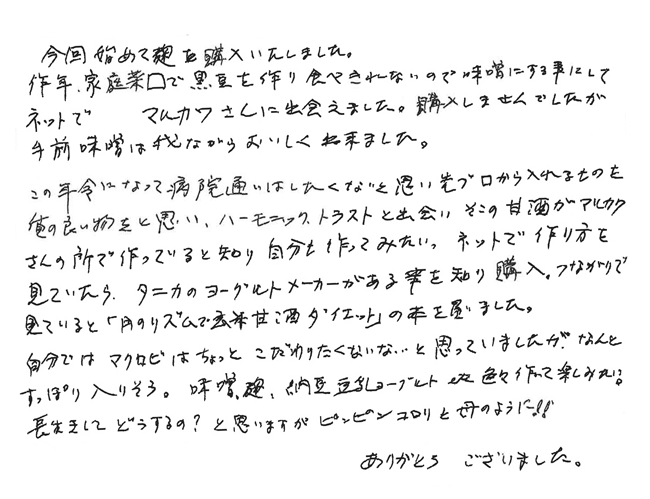 今回 始めて麹を購入いたしました。
作年、家庭菜口で黒豆を作り食べきれないので味噌にする事にして
ネットで マルカワさんに出会えました。購入しませんでしたが
手前味噌は我ながらおいしく出来ました。
この年令になって病院通いはしたくないと思い先ず口から入れるものを
質の良い物をと思い、ハーモニック、トラストと出会い そこの甘酒がマルカワ
さんの所で作っていると知り自分も作ってみたいっ ネットで作り方を
見ていたら、タニカのヨーグルトメーカーがある事を知り購入。つながりで
見ていると「月のリズムで玄米甘酒ダイエット」の本を買いました。
自分では マクロビはちょっと こだわりたくないないと思っていましたが、なんと
すっぽり入りそう。味噌、麹、納豆 豆乳ヨーグルト etc 色々作って楽しみたい
長生きして どうするの？と思いますが ピンピンコロリと母のように!!
ありがとう ございました。